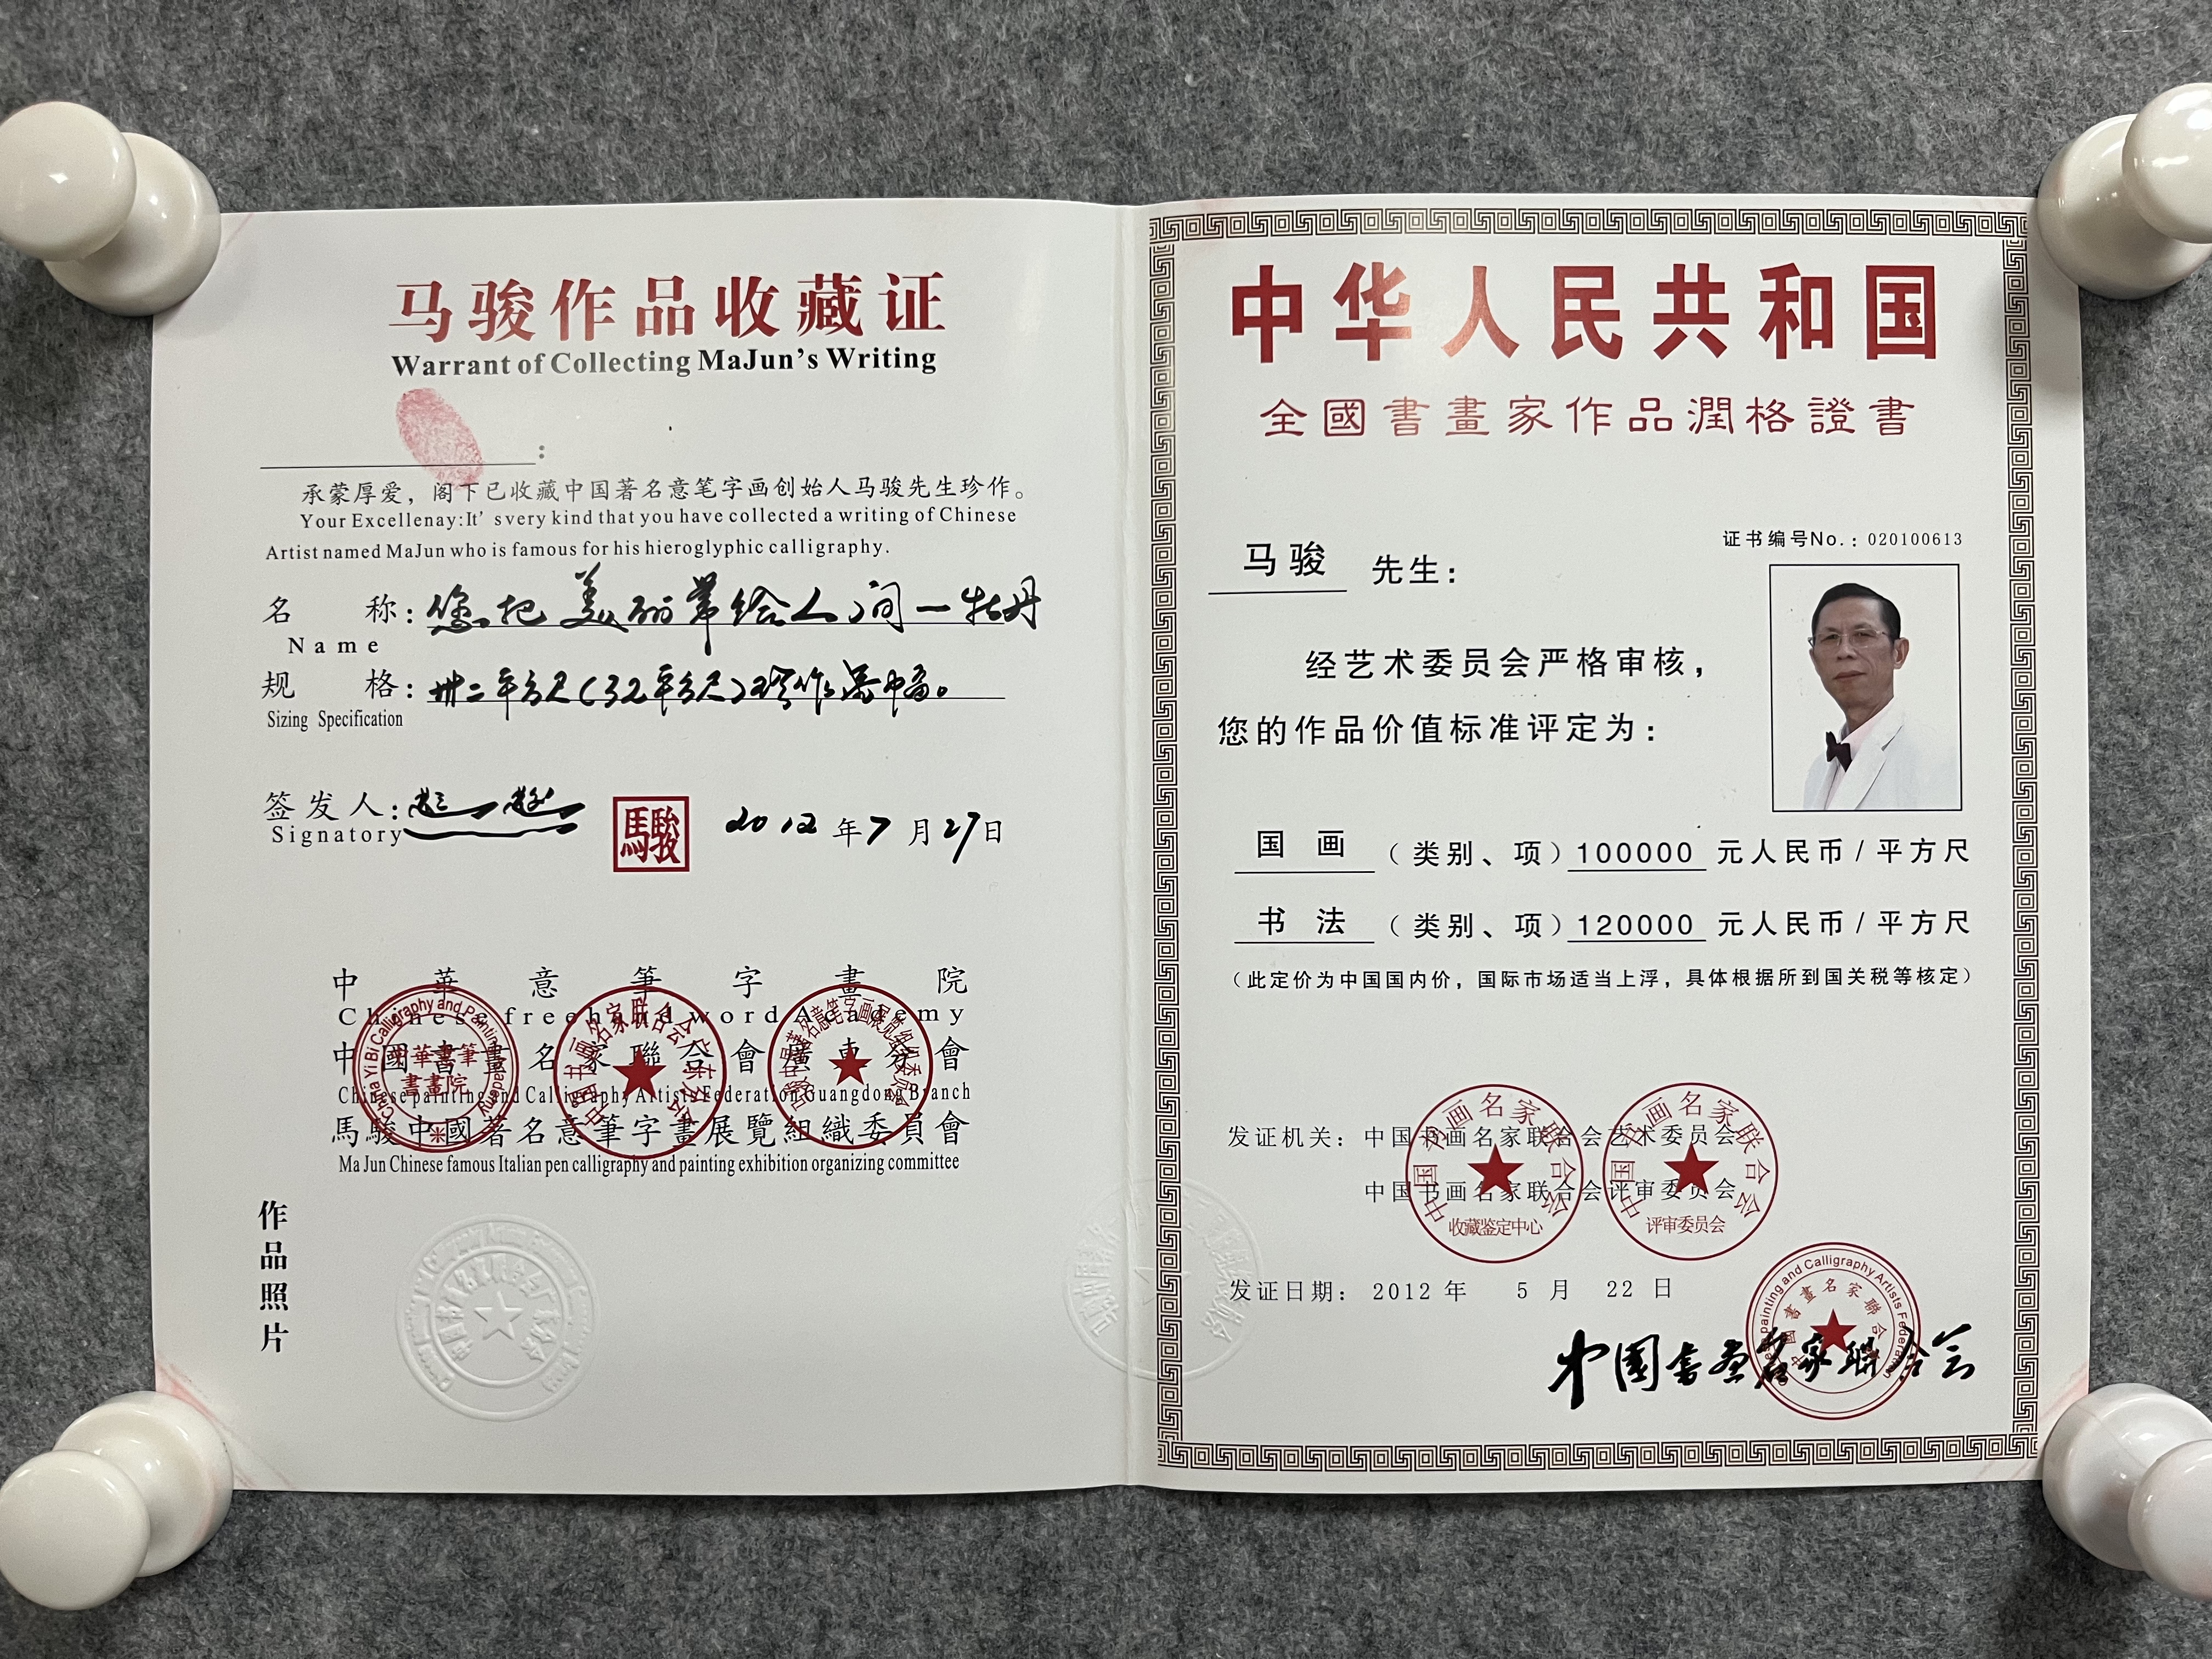 马骏作品收藏证
Warrant of Collecting MaJun's Writing
:
承蒙厚爱，阁下已收藏中国著名意笔字画创始人马骏先生珍作。
Your Excellenay:It' svery kind that you have collected a writing of Chinese
Artist named MaJun who is famous for his hieroglyphic calligraphy.
名 称：您把美丽带给人间一牡丹
Name
规 格：卅二平方尺(32平方尺)珍作
Sizing Specification
签发人：
Signatory
馬駿
2012年7月27日
中華意筆字畫院
Chinese freehand word Academy
中國書畫名家聯合會廣東分會
Chinese painting and Calligraphy Artists Federation Guangdong Branch
馬駿中國著名意筆字畫展覽組織委員會
Ma Jun Chinese famous Italian pen calligraphy and painting exhibition organizing committee
China Yi Bi Calligraphy and Painting Academy
中華書筆
書畫院
中国书画名家联合会广东分会
作品照片
中华人民共和国
全國書畫家作品潤格證書
证书编号No.：020100613
马骏 先生：
经艺术委员会严格审核，
您的作品价值标准评定为：
国画（类别、项）100000 元人民币/平方尺
书法（类别、项）120000 元人民币/平方尺
（此定价为中国国内价，国际市场适当上浮，具体根据所到国关税等核定）
发证机关：中国书画名家联合会艺术委员会
中国书画名家联合会评审委员会
中国书画名家联合会
收藏鉴定中心
中国书画名家联合会
评审委员会
发证日期：2012 年 5 月 22 日
painting and Calligraphy Artists Federation
中國書畫名家聯合會
中国书画名家联合会